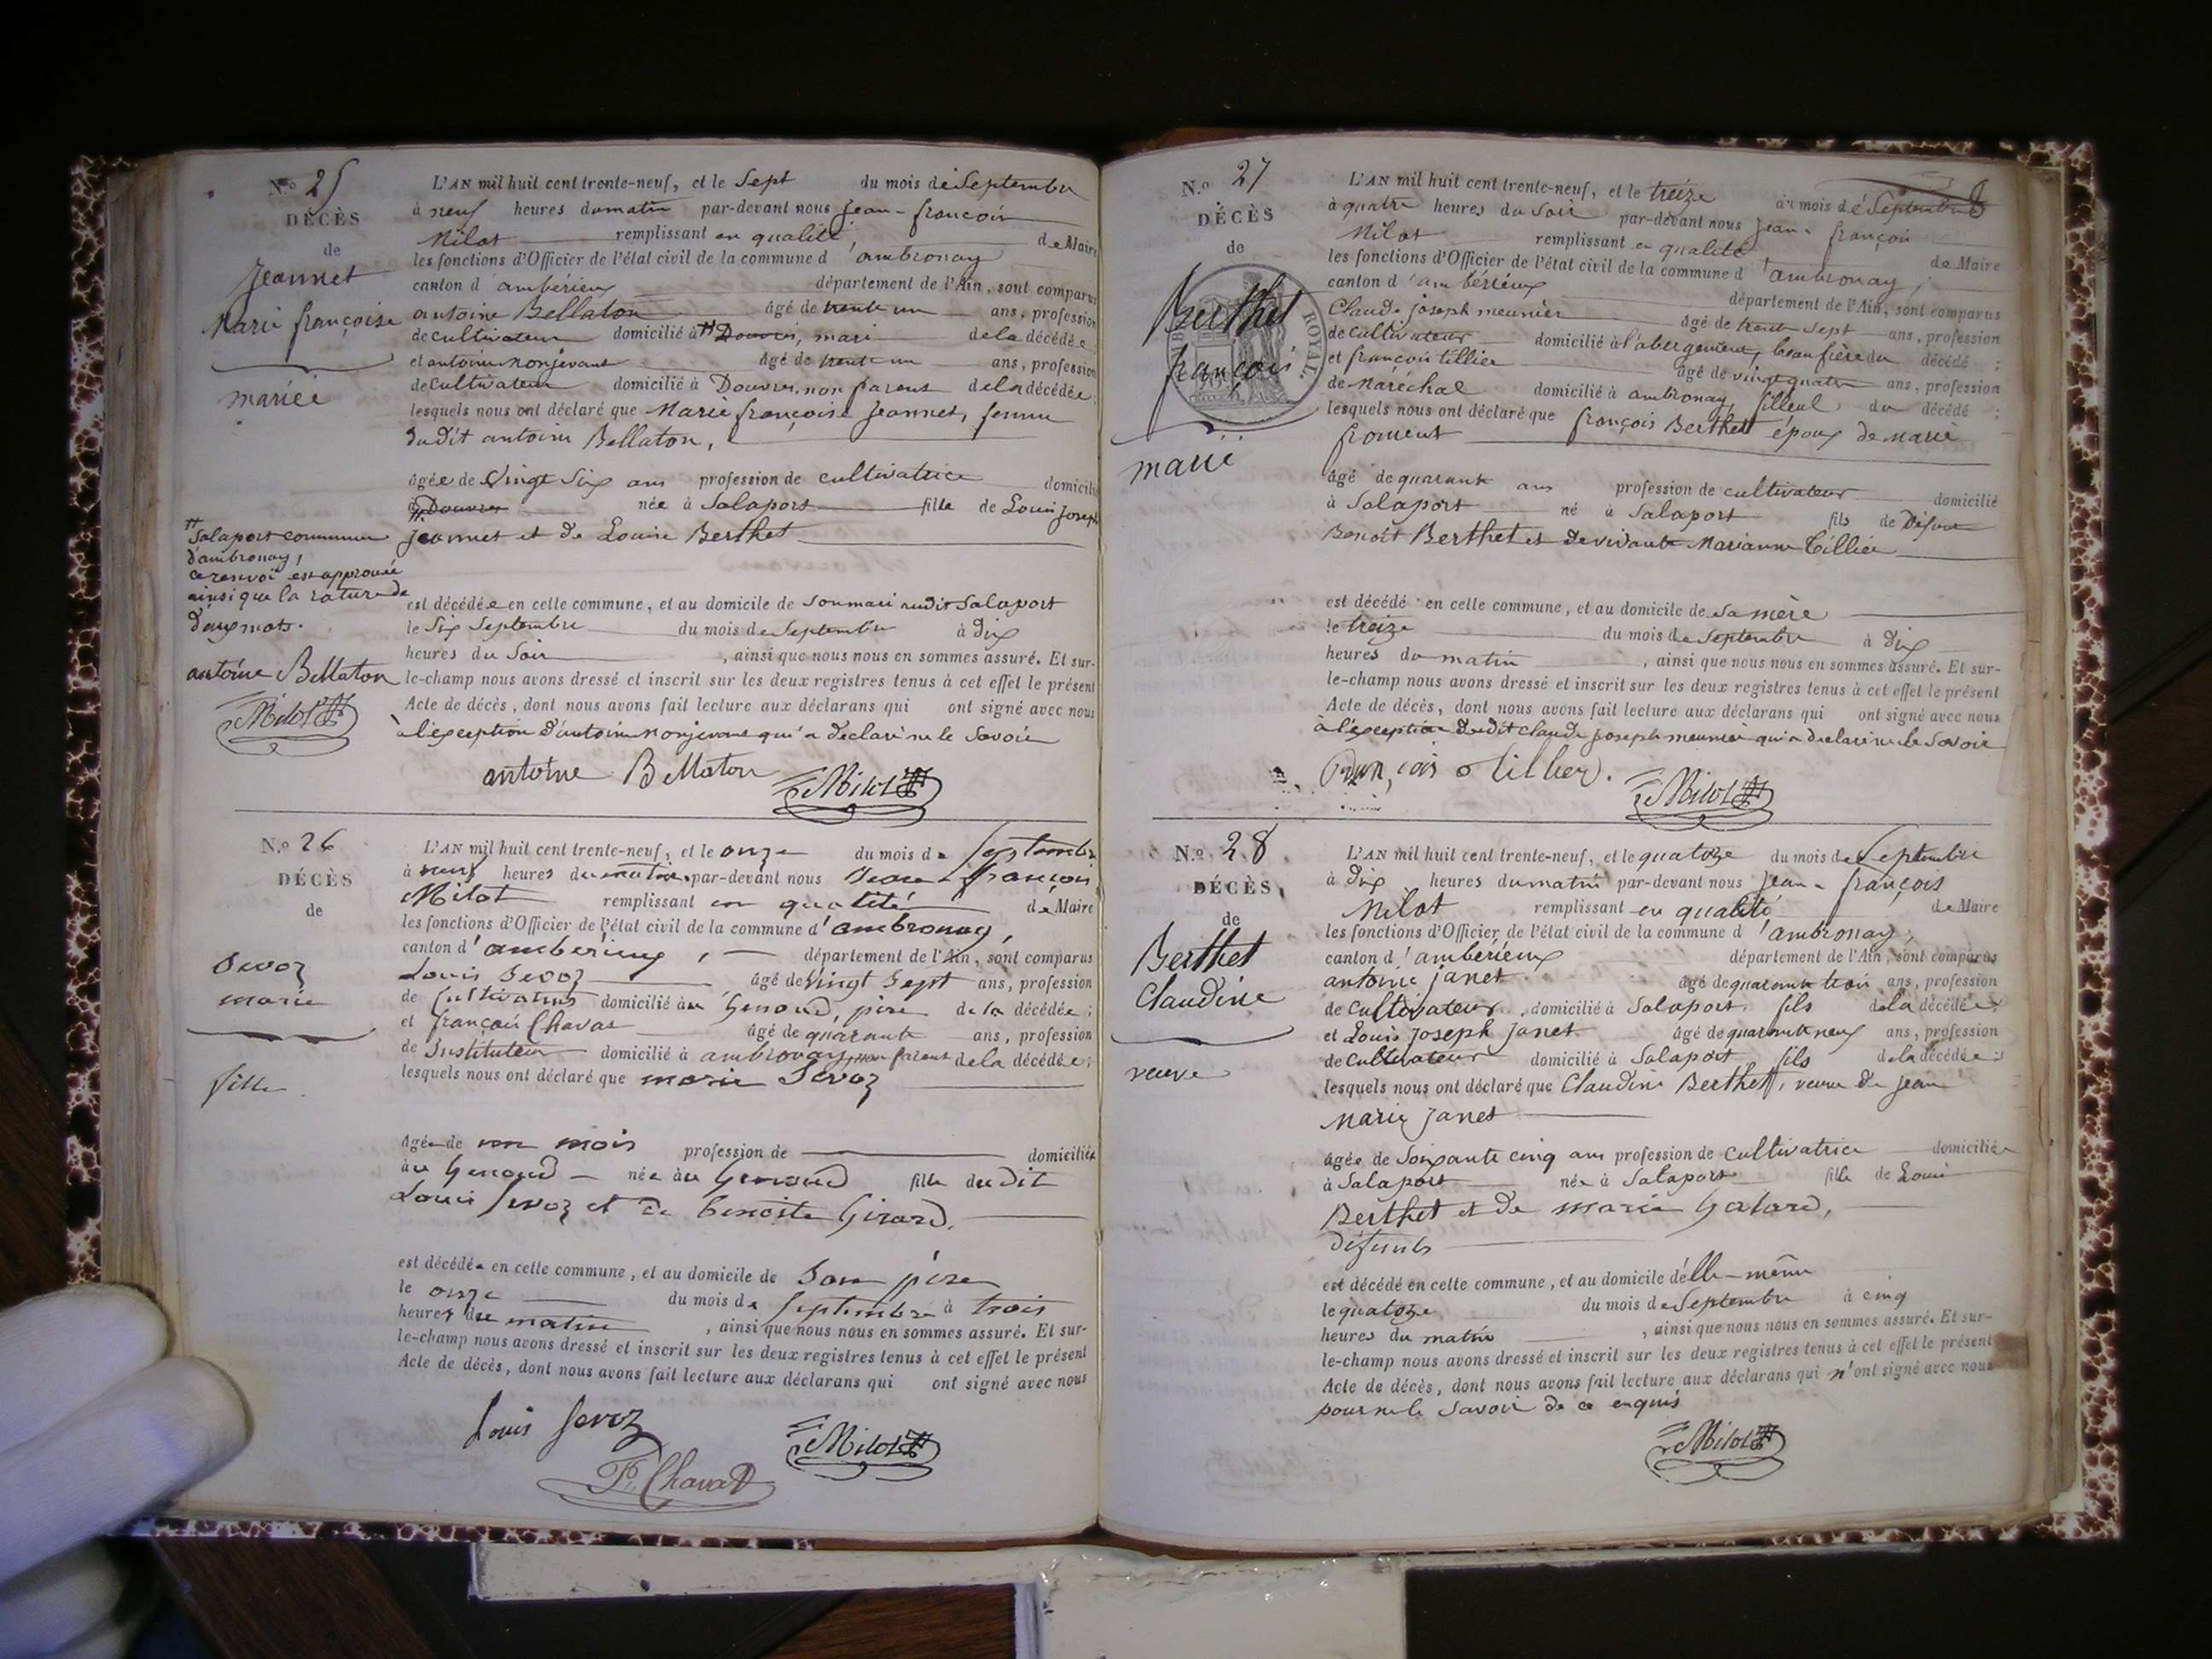 N.º 25
DÉCÈS
de
Jeannet
Marie françoise
mariée
L'AN mil huit cent trente-neuf, et le Sept du mois de Septembre
à neuf heures du matin par-devant nous Jean-françois
Milot remplissant en qualité de Maire
les fonctions d'Officier de l'état civil de la commune d'ambronay
canton d'ambérieux département de l'Ain, sont comparus
antoine Bellaton âgé de trente un ans, profession
de cultivateur domicilié à # Douvres, mari de la décédée
et antoine Monjevant âgé de trente un ans, profession
de cultivateur domicilié à Douvres, non parent de la décédée;
lesquels nous ont déclaré que Marie françoise Jeannet, femme
dudit antoine Bellaton,
âgée de Vingt Six ans profession de cultivatrice domicilié
à # Douvres née à Salaport fille de Louis Joseph
Jeannet et de Louise Berthet
est décédée en cette commune, et au domicile de Son mari audit Salaport
le Six Septembre du mois de Septembre à dix
heures du Soir, ainsi que nous nous en sommes assuré. Et sur-
le-champ nous avons dressé et inscrit sur les deux registres tenus à cet effet le présent
Acte de décès, dont nous avons fait lecture aux déclarans qui ont signé avec nous
à l'exception d'antoine Monjevant qui a déclaré ne le Savoir
antoine Bellaton Milot
# Salaport commune
d'ambronay,
ce renvoi est approuvé
ainsi que la rature de
deux mots.
antoine Bellaton
Milot
N.º 26
DÉCÈS
de
Sevoz
marie
fille
L'AN mil huit cent trente-neuf, et le onze du mois de Septembre
à neuf heures du matin par-devant nous Jean-françois
Milot remplissant en qualité de Maire
les fonctions d'Officier de l'état civil de la commune d'ambronay,
canton d'ambérieux, département de l'Ain, sont comparus
Louis Sevoz âgé de Vingt Sept ans, profession
de Cultivateur domicilié au Genoud, père de la décédée;
et françois Chavat âgé de quarante ans, profession
de Instituteur domicilié à ambronay, non parent de la décédée;
lesquels nous ont déclaré que marie Sevoz
âgée de un mois profession de domiciliée
au Genoud née au Genoud fille dudit
Louis Sevoz et de benoite Girard.
est décédée en cette commune, et au domicile de Son père
le onze du mois de Septembre à trois
heures du matin, ainsi que nous nous en sommes assuré. Et sur-
le-champ nous avons dressé et inscrit sur les deux registres tenus à cet effet le présent
Acte de décès, dont nous avons fait lecture aux déclarans qui ont signé avec nous
Louis Sevoz Milot
F. Chavat
N.º 27
DÉCÈS
de
Berthet
françois
ROYAL.
marié
8
L'AN mil huit cent trente-neuf, et le treize du mois de Septembre
à quatre heures du Soir par-devant nous Jean-françois
Milot remplissant en qualité de Maire
les fonctions d'Officier de l'état civil de la commune d'ambronay;
canton d'ambérieux département de l'Ain, sont comparus
Claude joseph meunier âgé de trente Sept ans, profession
de cultivateur domicilié à l'abergement, beaufrère du décédé;
et françois tillier âgé de vingt quatre ans, profession
de Maréchal domicilié à ambronay, filleul du décédé;
lesquels nous ont déclaré que françois Berthet époux de Marie
froment
âgé de quarante ans profession de cultivateur domicilié
à Salaport né à Salaport fils de Défunt
Benoît Berthet et de vivante Marianne Tillier
est décédé en cette commune, et au domicile de sa mère
le treize du mois de Septembre à dix
heures du matin, ainsi que nous nous en sommes assuré. Et sur-
le-champ nous avons dressé et inscrit sur les deux registres tenus à cet effet le présent
Acte de décès, dont nous avons fait lecture aux déclarans qui ont signé avec nous
à l'exception dudit claude Joseph meunier qui a déclaré ne le Savoir
tillier. Milot
N.º 28
DÉCÈS
de
Berthet
Claudine
veuve
L'AN mil huit cent trente-neuf, et le quatoze du mois de Septembre
à dix heures du matin par-devant nous Jean-françois
Milot remplissant en qualité de Maire
les fonctions d'Officier de l'état civil de la commune d'ambronay;
canton d'ambérieux département de l'Ain, sont comparus
antoine janet âgé de quarante trois ans, profession
de Cultivateur, domicilié à Salaport fils de la décédée;
et Louis Joseph Janet âgé de quarante neuf ans, profession
de Cultivateur domicilié à Salaport fils de la décédée;
lesquels nous ont déclaré que Claudine Berthet, veuve de Jean
Marie Janet
âgée de Soixante cinq ans profession de Cultivatrice domiciliée
à Salaport née à Salaport fille de Louis
Berthet et de marie Galard,
défunts
est décédé en cette commune, et au domicile d'élle-même
le quatoze du mois de Septembre à cinq
heures du matin, ainsi que nous nous en sommes assuré. Et sur-
le-champ nous avons dressé et inscrit sur les deux registres tenus à cet effet le présent
Acte de décès, dont nous avons fait lecture aux déclarans qui n'ont signé avec nous
pour ne le Savoir de ce enquis
Milot